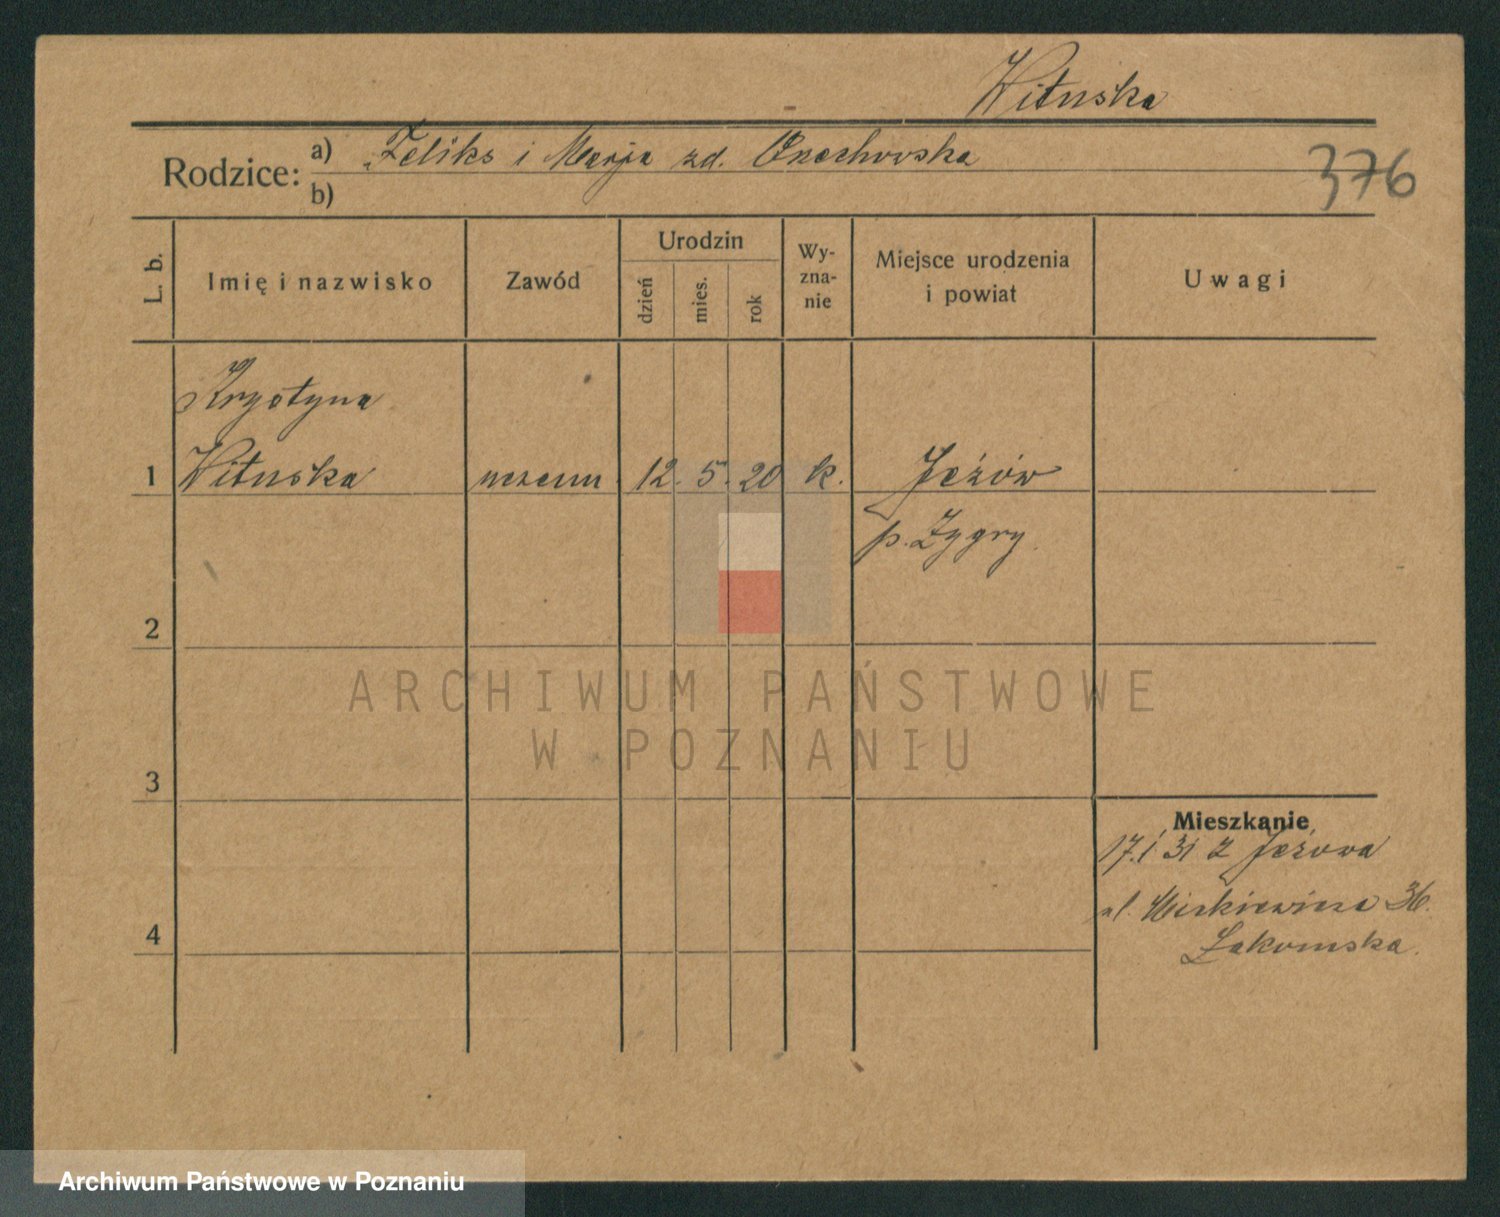 Wituska
Rodzice: a) Feliks i Marja zd. Orzechowska
b)
376
L. b.
Imię i nazwisko
Zawód
Urodzin
dzień
mies.
rok
Wy-
zna-
nie
Miejsce urodzenia
i powiat
Uwagi
Krystyna
1 Wituska uczenn 12. 5. 20 k. Jeżów
p. Zygry
2
3
4
Mieszkanie
17.1 31 z Jeżowa
ul. Mickiewicza 36.
Łakomska.
ARCHIWUM PAŃSTWOWE
W POZNANIU
Archiwum Państwowe w Poznaniu